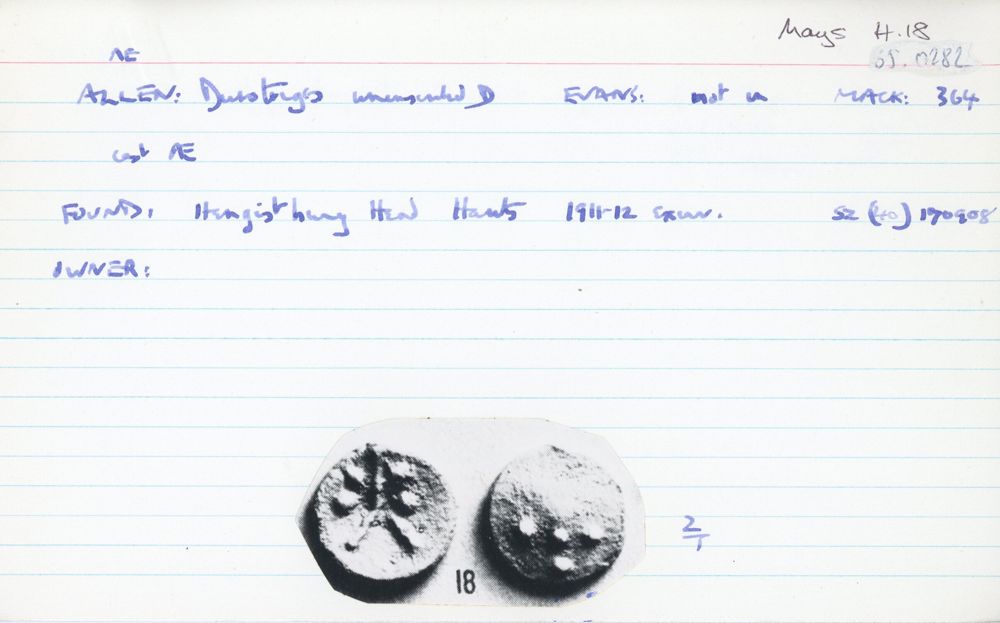 Mays H.18
65.0282
AE
ALLEN: Durotriges uninscribed D EVANS: not in MACK: 364
cast AE
FOUND: Hengistbury Head Hants 1911-12 excav. SZ (40) 170908
OWNER:
18
2/1